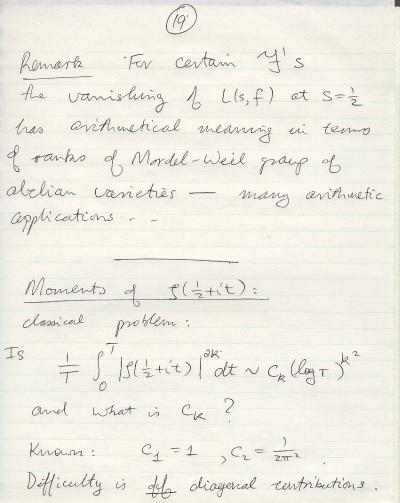 19
Remark For certain F's
the vanishing of L(s,f) at s=1/2
has arithmetical meaning in terms
of ranks of Mordel-Weil group of
abelian varieties — many arithmetic
applications...
Moments of ζ(1/2+it):
classical problem:
Is 1/T ∫_0^T |ζ(1/2+it)|^{2k} dt ~ C_k (log T)^{k^2}
and what is C_k ?
Known: C_1 = 1 , C_2 = 1/2π^2 .
Difficulty is diagonal contributions.